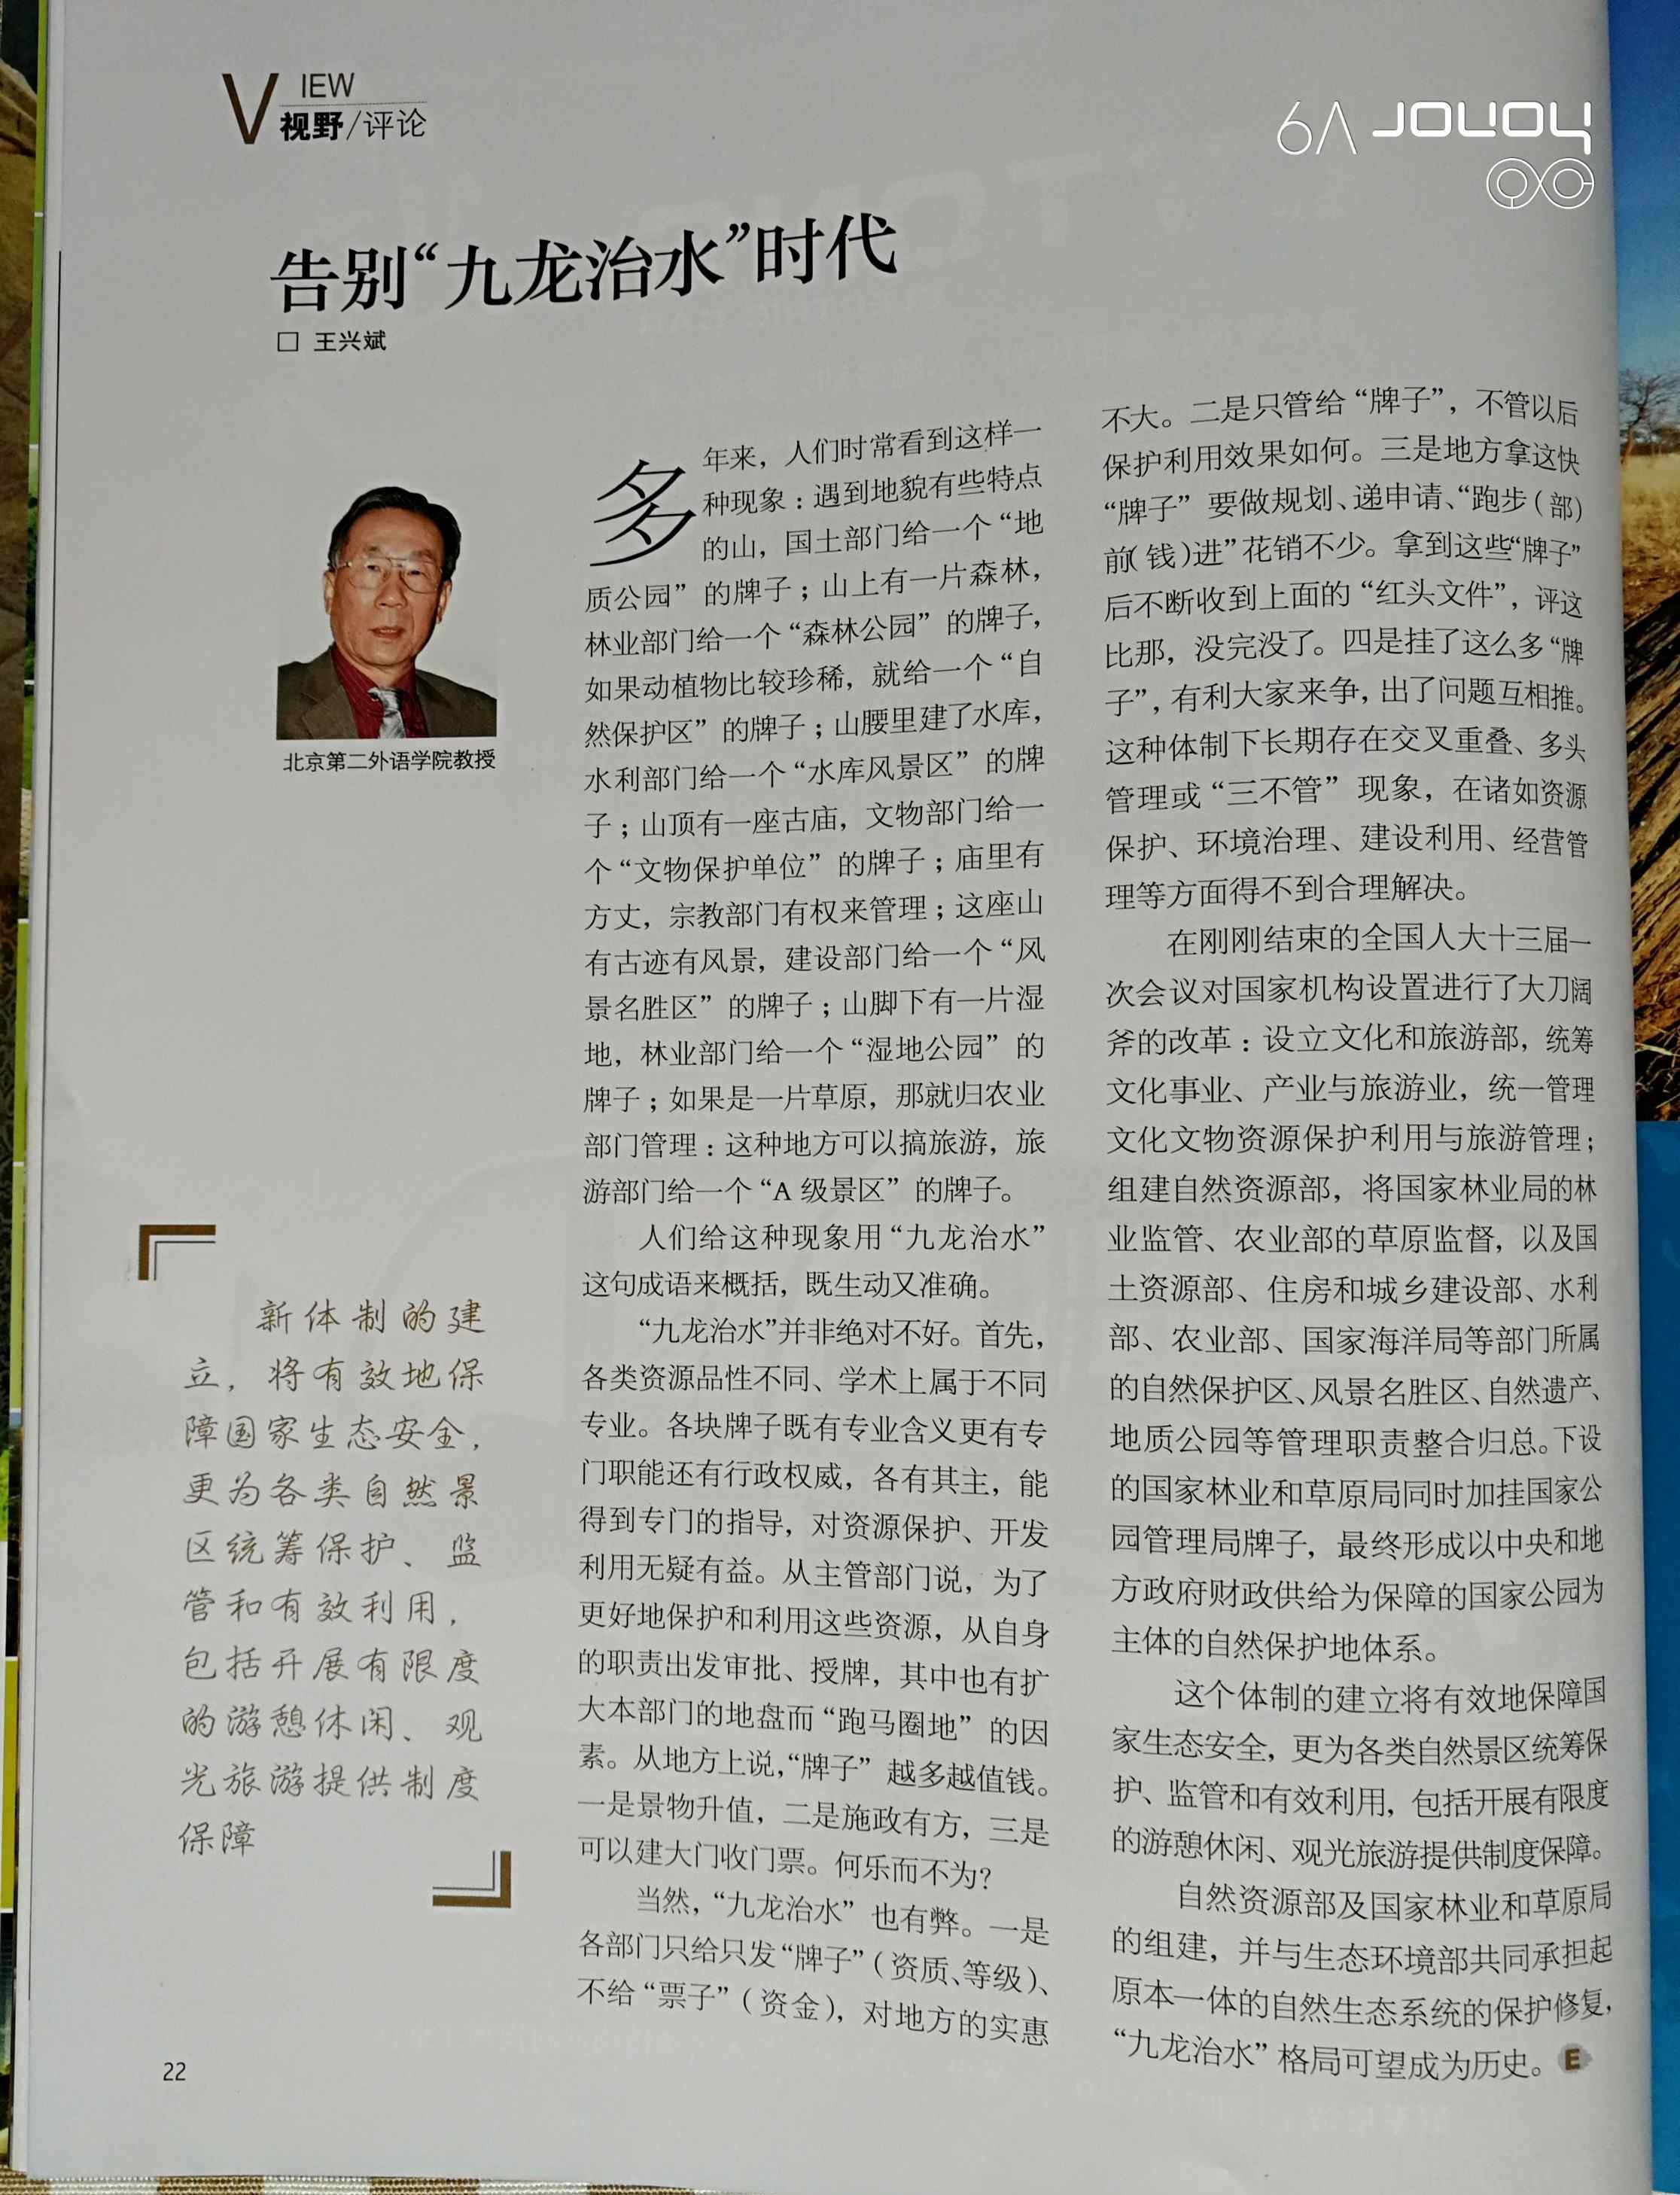 VIEW
视野/评论
6A JOUOY
告别“九龙治水”时代
□ 王兴斌
北京第二外语学院教授
新体制的建
立，将有效地保
障国家生态安全，
更为各类自然景
区统筹保护、监
管和有效利用，
包括开展有限度
的游憩休闲、观
光旅游提供制度
保障
多年来，人们时常看到这样一
种现象：遇到地貌有些特点
的山，国土部门给一个“地
质公园”的牌子；山上有一片森林，
林业部门给一个“森林公园”的牌子，
如果动植物比较珍稀，就给一个“自
然保护区”的牌子；山腰里建了水库，
水利部门给一个“水库风景区”的牌
子；山顶有一座古庙，文物部门给一
个“文物保护单位”的牌子；庙里有
方丈，宗教部门有权来管理；这座山
有古迹有风景，建设部门给一个“风
景名胜区”的牌子；山脚下有一片湿
地，林业部门给一个“湿地公园”的
牌子；如果是一片草原，那就归农业
部门管理：这种地方可以搞旅游，旅
游部门给一个“A 级景区”的牌子。
人们给这种现象用“九龙治水”
这句成语来概括，既生动又准确。
“九龙治水”并非绝对不好。首先，
各类资源品性不同、学术上属于不同
专业。各块牌子既有专业含义更有专
门职能还有行政权威，各有其主，能
得到专门的指导，对资源保护、开发
利用无疑有益。从主管部门说，为了
更好地保护和利用这些资源，从自身
的职责出发审批、授牌，其中也有扩
大本部门的地盘而“跑马圈地”的因
素。从地方上说，“牌子”越多越值钱。
一是景物升值，二是施政有方，三是
可以建大门收门票。何乐而不为？
当然，“九龙治水”也有弊。一是
各部门只给只发“牌子”（资质、等级）、
不给“票子”（资金），对地方的实惠
不大。二是只管给“牌子”，不管以后
保护利用效果如何。三是地方拿这快
“牌子”要做规划、递申请、“跑步（部）
前（钱）进”花销不少。拿到这些“牌子”
后不断收到上面的“红头文件”，评这
比那，没完没了。四是挂了这么多“牌
子”，有利大家来争，出了问题互相推。
这种体制下长期存在交叉重叠、多头
管理或“三不管”现象，在诸如资源
保护、环境治理、建设利用、经营管
理等方面得不到合理解决。
在刚刚结束的全国人大十三届一
次会议对国家机构设置进行了大刀阔
斧的改革：设立文化和旅游部，统筹
文化事业、产业与旅游业，统一管理
文化文物资源保护利用与旅游管理；
组建自然资源部，将国家林业局的林
业监管、农业部的草原监督，以及国
土资源部、住房和城乡建设部、水利
部、农业部、国家海洋局等部门所属
的自然保护区、风景名胜区、自然遗产、
地质公园等管理职责整合归总。下设
的国家林业和草原局同时加挂国家公
园管理局牌子，最终形成以中央和地
方政府财政供给为保障的国家公园为
主体的自然保护地体系。
这个体制的建立将有效地保障国
家生态安全，更为各类自然景区统筹保
护、监管和有效利用，包括开展有限度
的游憩休闲、观光旅游提供制度保障。
自然资源部及国家林业和草原局
的组建，并与生态环境部共同承担起
原本一体的自然生态系统的保护修复，
“九龙治水”格局可望成为历史。E
22